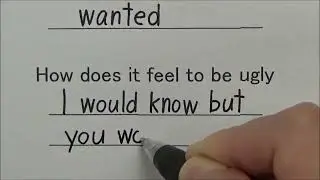 wanted
How does it feel to be ugly
I would know but
you wo